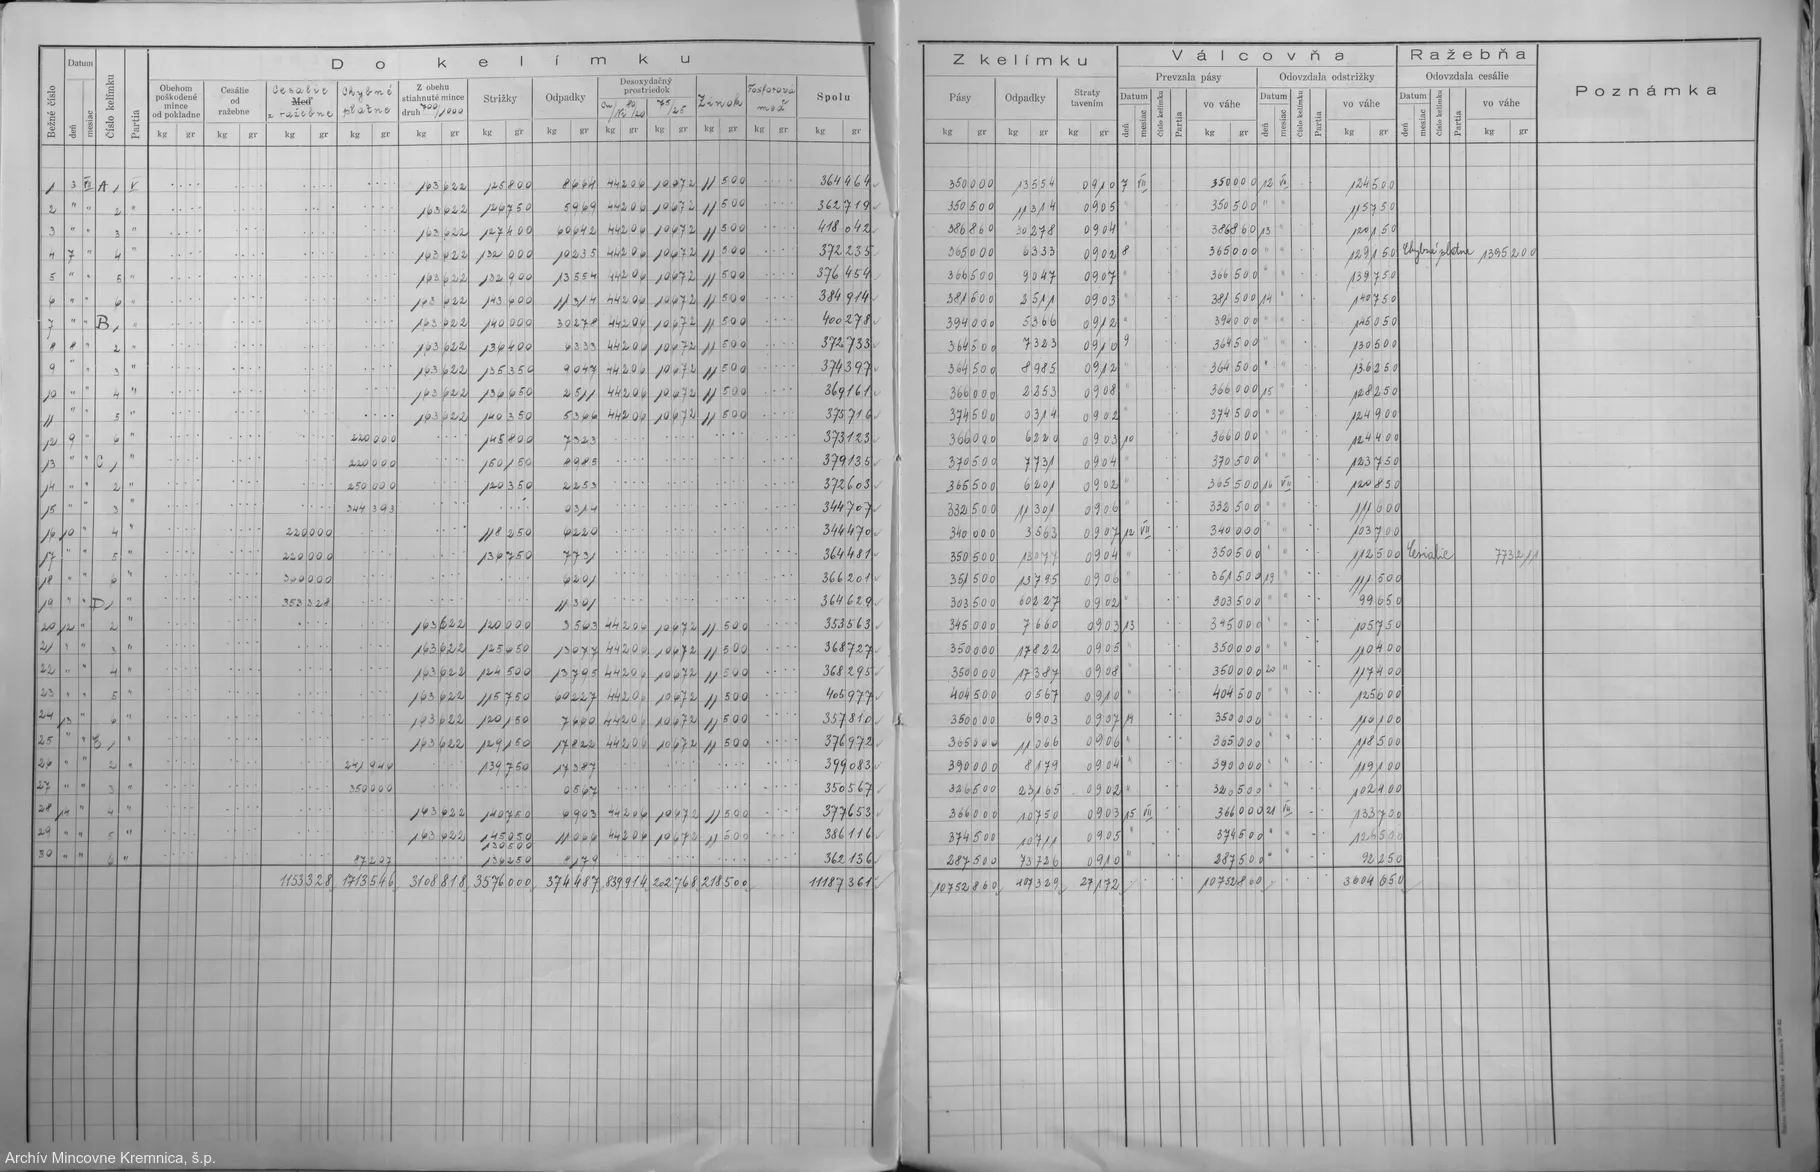 Do kelímku
Bežné číslo
Datum
deň
mesiac
Číslo kelímku
Partia
Obehom poškodené mince od pokladne
Cesálie od ražebne
Cesálie Meď z ražebne
Chybné platne
Z obehu stiahnuté mince druh 700/1000
Strižky
Odpadky
Desoxydačný prostriedok
75/25
Zinok
Fosforová meď
Spolu
kg gr kg gr kg gr kg gr kg gr kg gr kg gr kg gr kg gr kg gr kg gr kg gr
1 3 VII A 1 V 163622 125800 8664 44206 10672 11500 364464
2 " " 2 " 163622 126750 5969 44206 10672 11500 362719
3 " " 3 " 163622 127400 60642 44206 10672 11500 418042
4 7 " 4 " 163622 132000 10235 44206 10672 11500 372235
5 " " 5 " 163622 132900 13554 44206 10672 11500 376454
6 " " 6 " 163622 143600 11314 44206 10672 11500 384914
7 " " B 1 " 163622 140000 30278 44206 10672 11500 400278
8 8 " 2 " 163622 136400 6333 44206 10672 11500 372733
9 " " 3 " 163622 135350 9047 44206 10672 11500 374397
10 " " 4 " 163622 136650 2511 44206 10672 11500 369161
11 " " 5 " 163622 140350 5366 44206 10672 11500 375716
12 9 " 6 " 220000 145800 7323 373123
13 " " C 1 " 220000 150150 8985 379135
14 " " 2 " 250000 120350 2253 372603
15 " " 3 " 344393 0314 344707
16 10 " 4 " 220000 118250 6220 344470
17 " " 5 " 220000 136750 7731 364481
18 " " 6 " 360000 6201 366201
19 " " D 1 " 353328 11301 364629
20 12 " 2 " 163622 120000 3563 44206 10672 11500 353563
21 " " 3 " 163622 125650 13077 44206 10672 11500 368727
22 " " 4 " 163622 124500 13795 44206 10672 11500 368295
23 " " 5 " 163622 115750 60227 44206 10672 11500 405977
24 13 " 6 " 163622 120150 7660 44206 10672 11500 357810
25 " " E 1 " 163622 129150 17822 44206 10672 11500 376972
26 " " 2 " 241946 139750 17387 399083
27 " " 3 " 350000 0567 350567
28 14 " 4 " 163622 140750 6903 44206 10672 11500 377653
29 " " 5 " 163622 145050 11066 44206 10672 11500 386116
130500
30 " " 6 " 87207 136250 8179 362136
1153328 1713546 3108818 3576000 374487 839914 202768 218500 11187361
Z kelímku
Válcovňa
Ražebňa
Poznámka
Pásy
Odpadky
Straty tavením
Prevzala pásy
Odovzdala odstrižky
Odovzdala cesálie
Datum
deň
mesiac
číslo kelímku
Partia
vo váhe
Datum
deň
mesiac
číslo kelímku
Partia
vo váhe
Datum
deň
mesiac
číslo kelímku
Partia
vo váhe
kg gr kg gr kg gr kg gr kg gr kg gr
350000 13554 0910 7 VII 350000 12 VII 124500
350500 11314 0905 " 350500 " " 115750
386860 30278 0904 " 386860 13 " 120150
365000 6333 0902 8 365000 " " 129150 Chybné platne 1395200
366500 9047 0907 " 366500 " " 139750
381500 2511 0903 " 381500 14 " 140750
394000 5366 0912 " 394000 " " 145050
364500 7323 0910 9 364500 " " 130500
364500 8985 0912 " 364500 " " 136250
366000 2253 0908 " 366000 15 " 128250
374500 0314 0902 " 374500 " " 124900
366000 6220 0903 10 366000 " " 124400
370500 7731 0904 " 370500 " " 123750
365500 6201 0902 " 365500 16 VII 120850
332500 11301 0906 " 332500 " " 111600
340000 3563 0907 12 VII 340000 " " 103700
350500 13077 0904 " 350500 " " 112500 Cesalie 773211
351500 13795 0906 " 351500 19 " 111500
303500 60227 0902 " 303500 " " 99650
345000 7660 0903 13 345000 " " 105750
350000 17822 0905 " 350000 " " 110400
350000 17387 0908 " 350000 20 " 117400
404500 0567 0910 " 404500 " " 125600
350000 6903 0907 14 350000 " " 110100
365000 11066 0906 " 365000 " " 118500
390000 8179 0904 " 390000 " " 119100
326500 23165 0902 " 326500 " " 102400
366000 10750 0903 15 VII 366000 21 VII 133700
374500 10711 0905 " 374500 " " 126500
287500 73726 0910 " 287500 " " 92250
10752860 407329 27172 10752860 3604650
Archív Mincovne Kremnica, š.p.